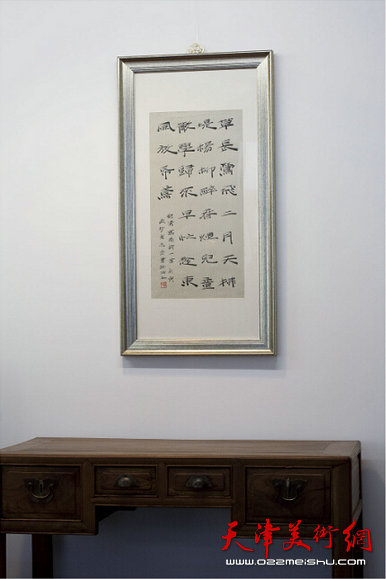 草長鶯飛二月天拂
堤楊柳醉春煙兒童
散學歸來早忙趁東
風放紙鳶
天津美術網
www.022meishu.com